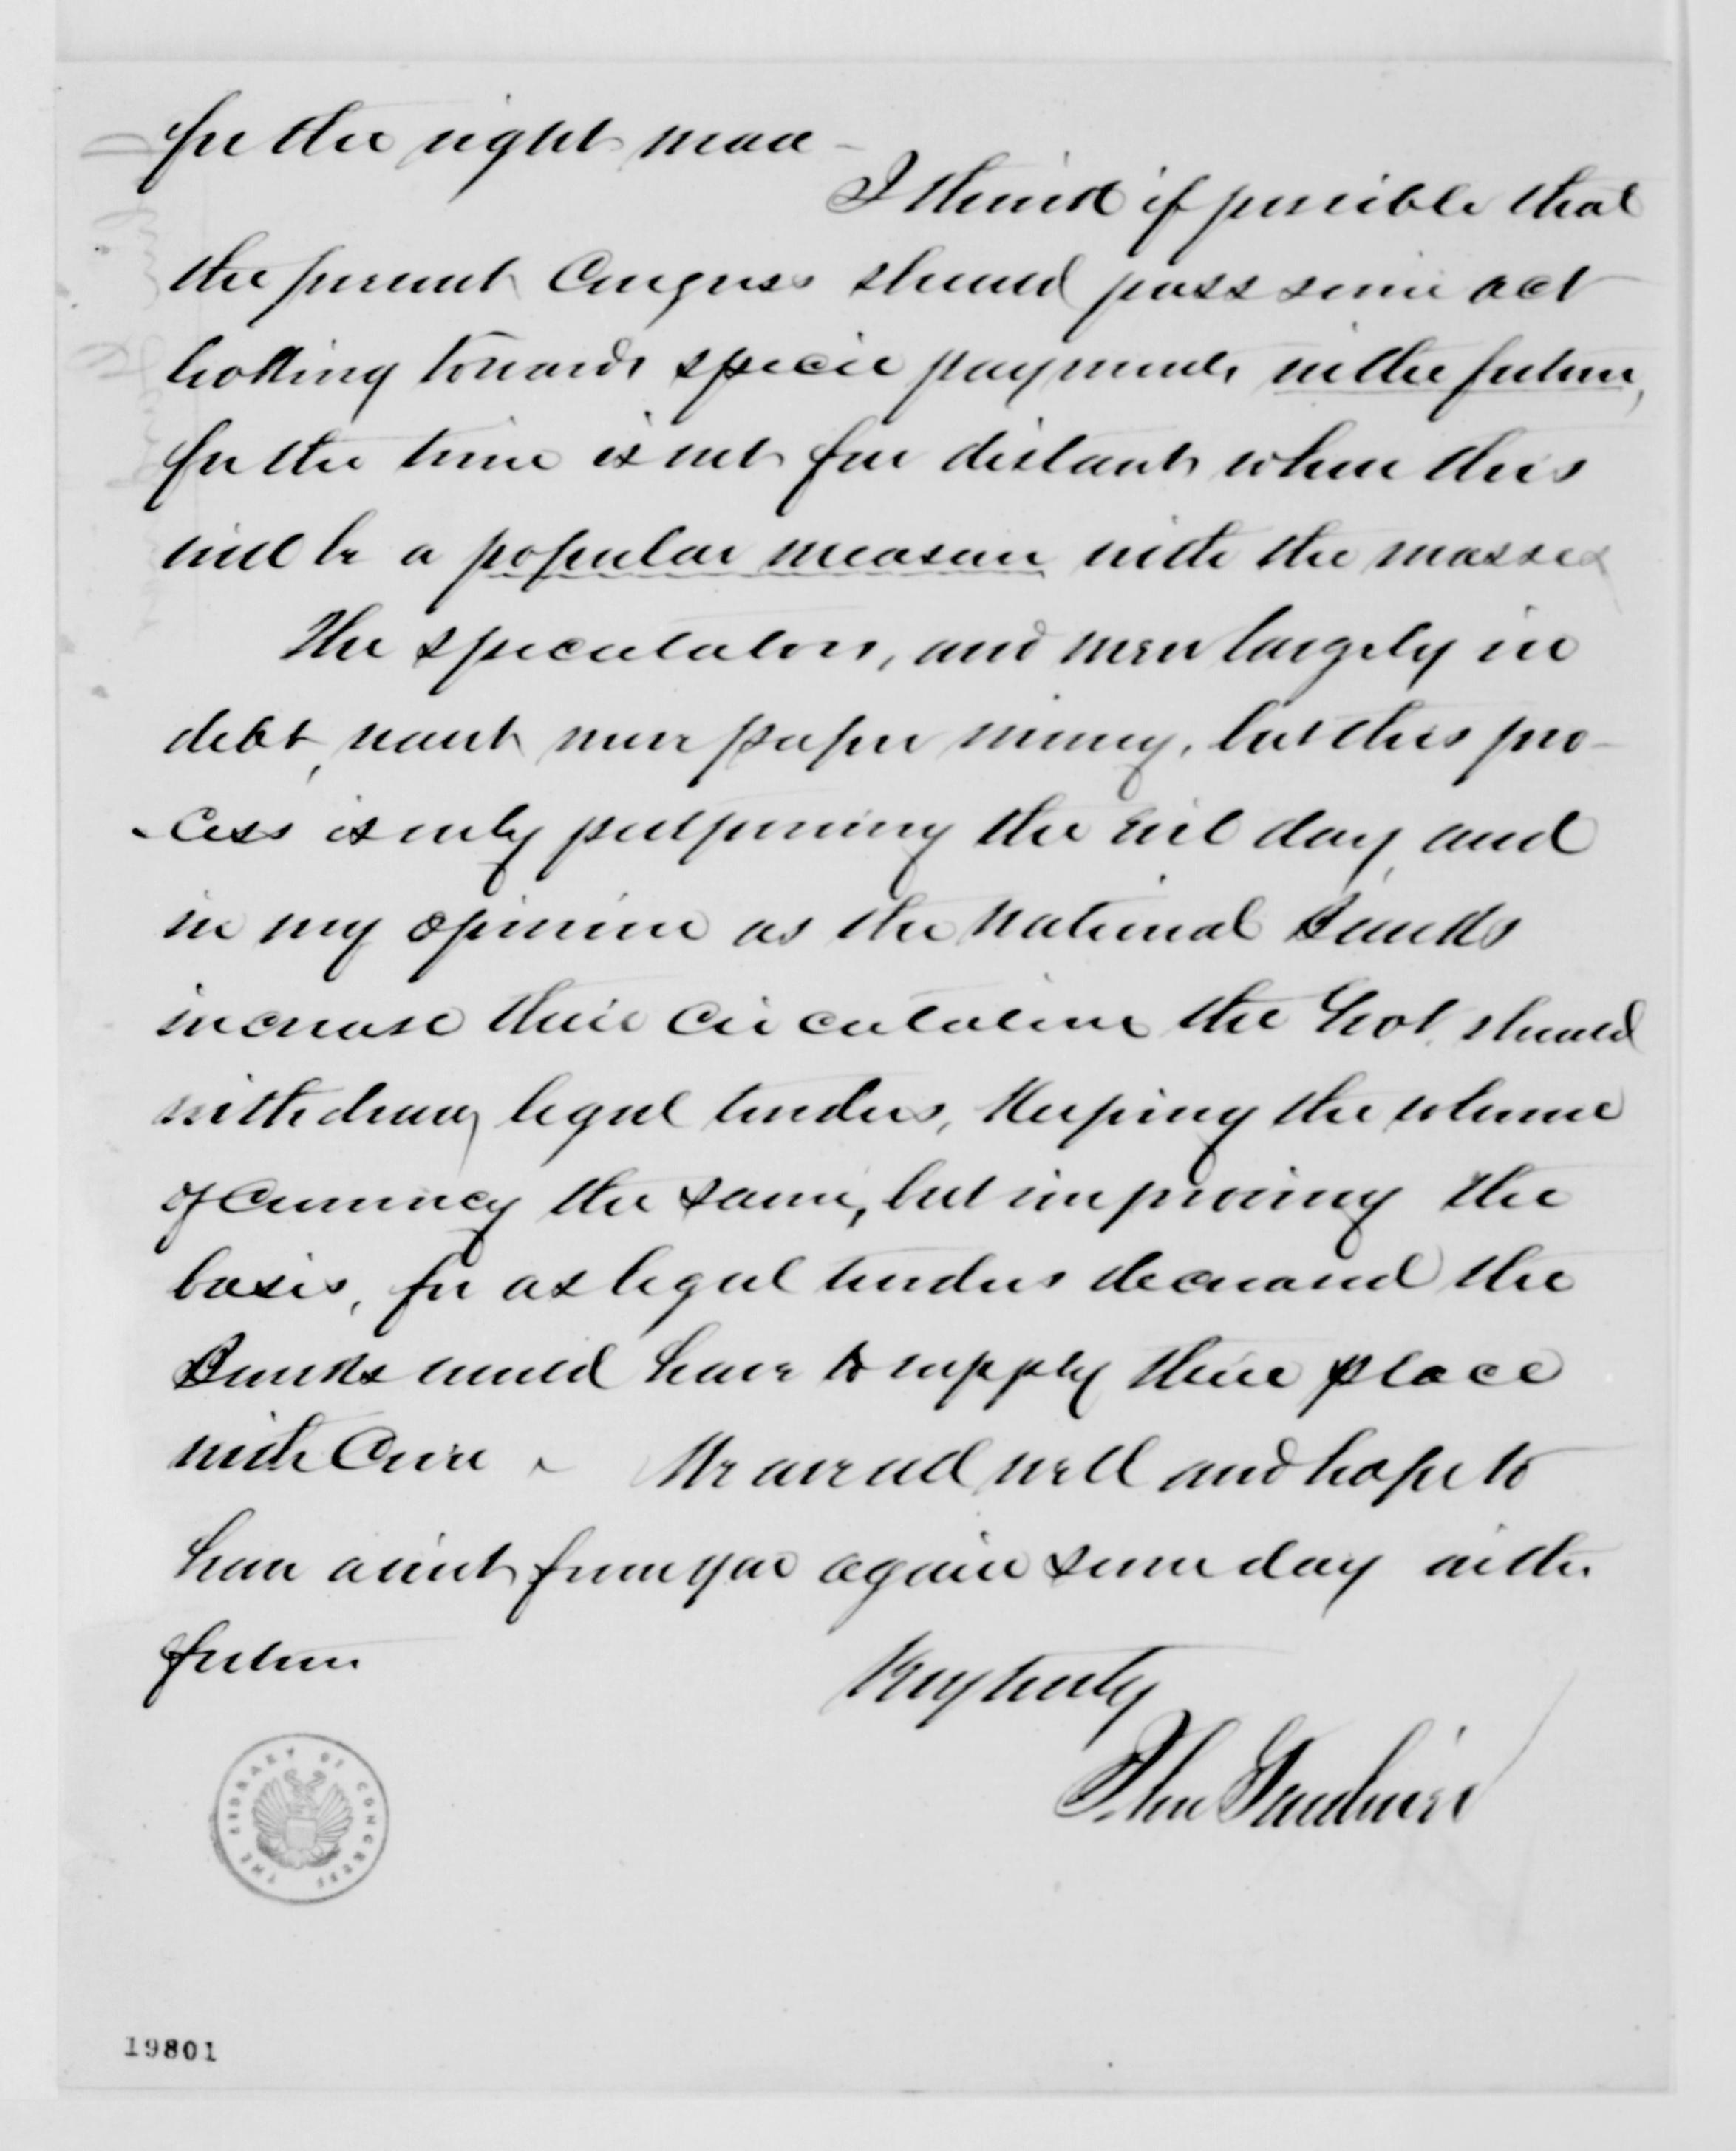 for the right man -
I think if possible that
the present Congress should pass some act
looking towards specie payments in the future,
for the time is not far distant when this
will be a popular measure with the masses
The speculators, and men largely in
debt, want more paper money, but this pro-
-cess is only postponing the evil day, and
in my opinion as the National Banks
increase their circulation the Govt. should
withdraw legal tenders, keeping the volume
of Currency the same, but improving the
basis, for as legal tenders decreased the
Banks would have to supply their place
with Coin - We are all well and hope to
have a visit from you again some day in the
future
Very truly
John
THE LIBRARY OF CONGRESS
19801